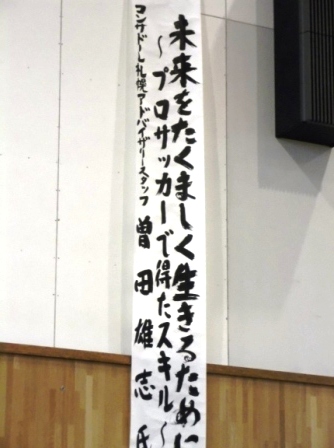 未来をたくましく生きるために
〜プロサッカーで得たスキル〜
コンサドーレ札幌アドバイザリースタッフ 曽田雄志氏